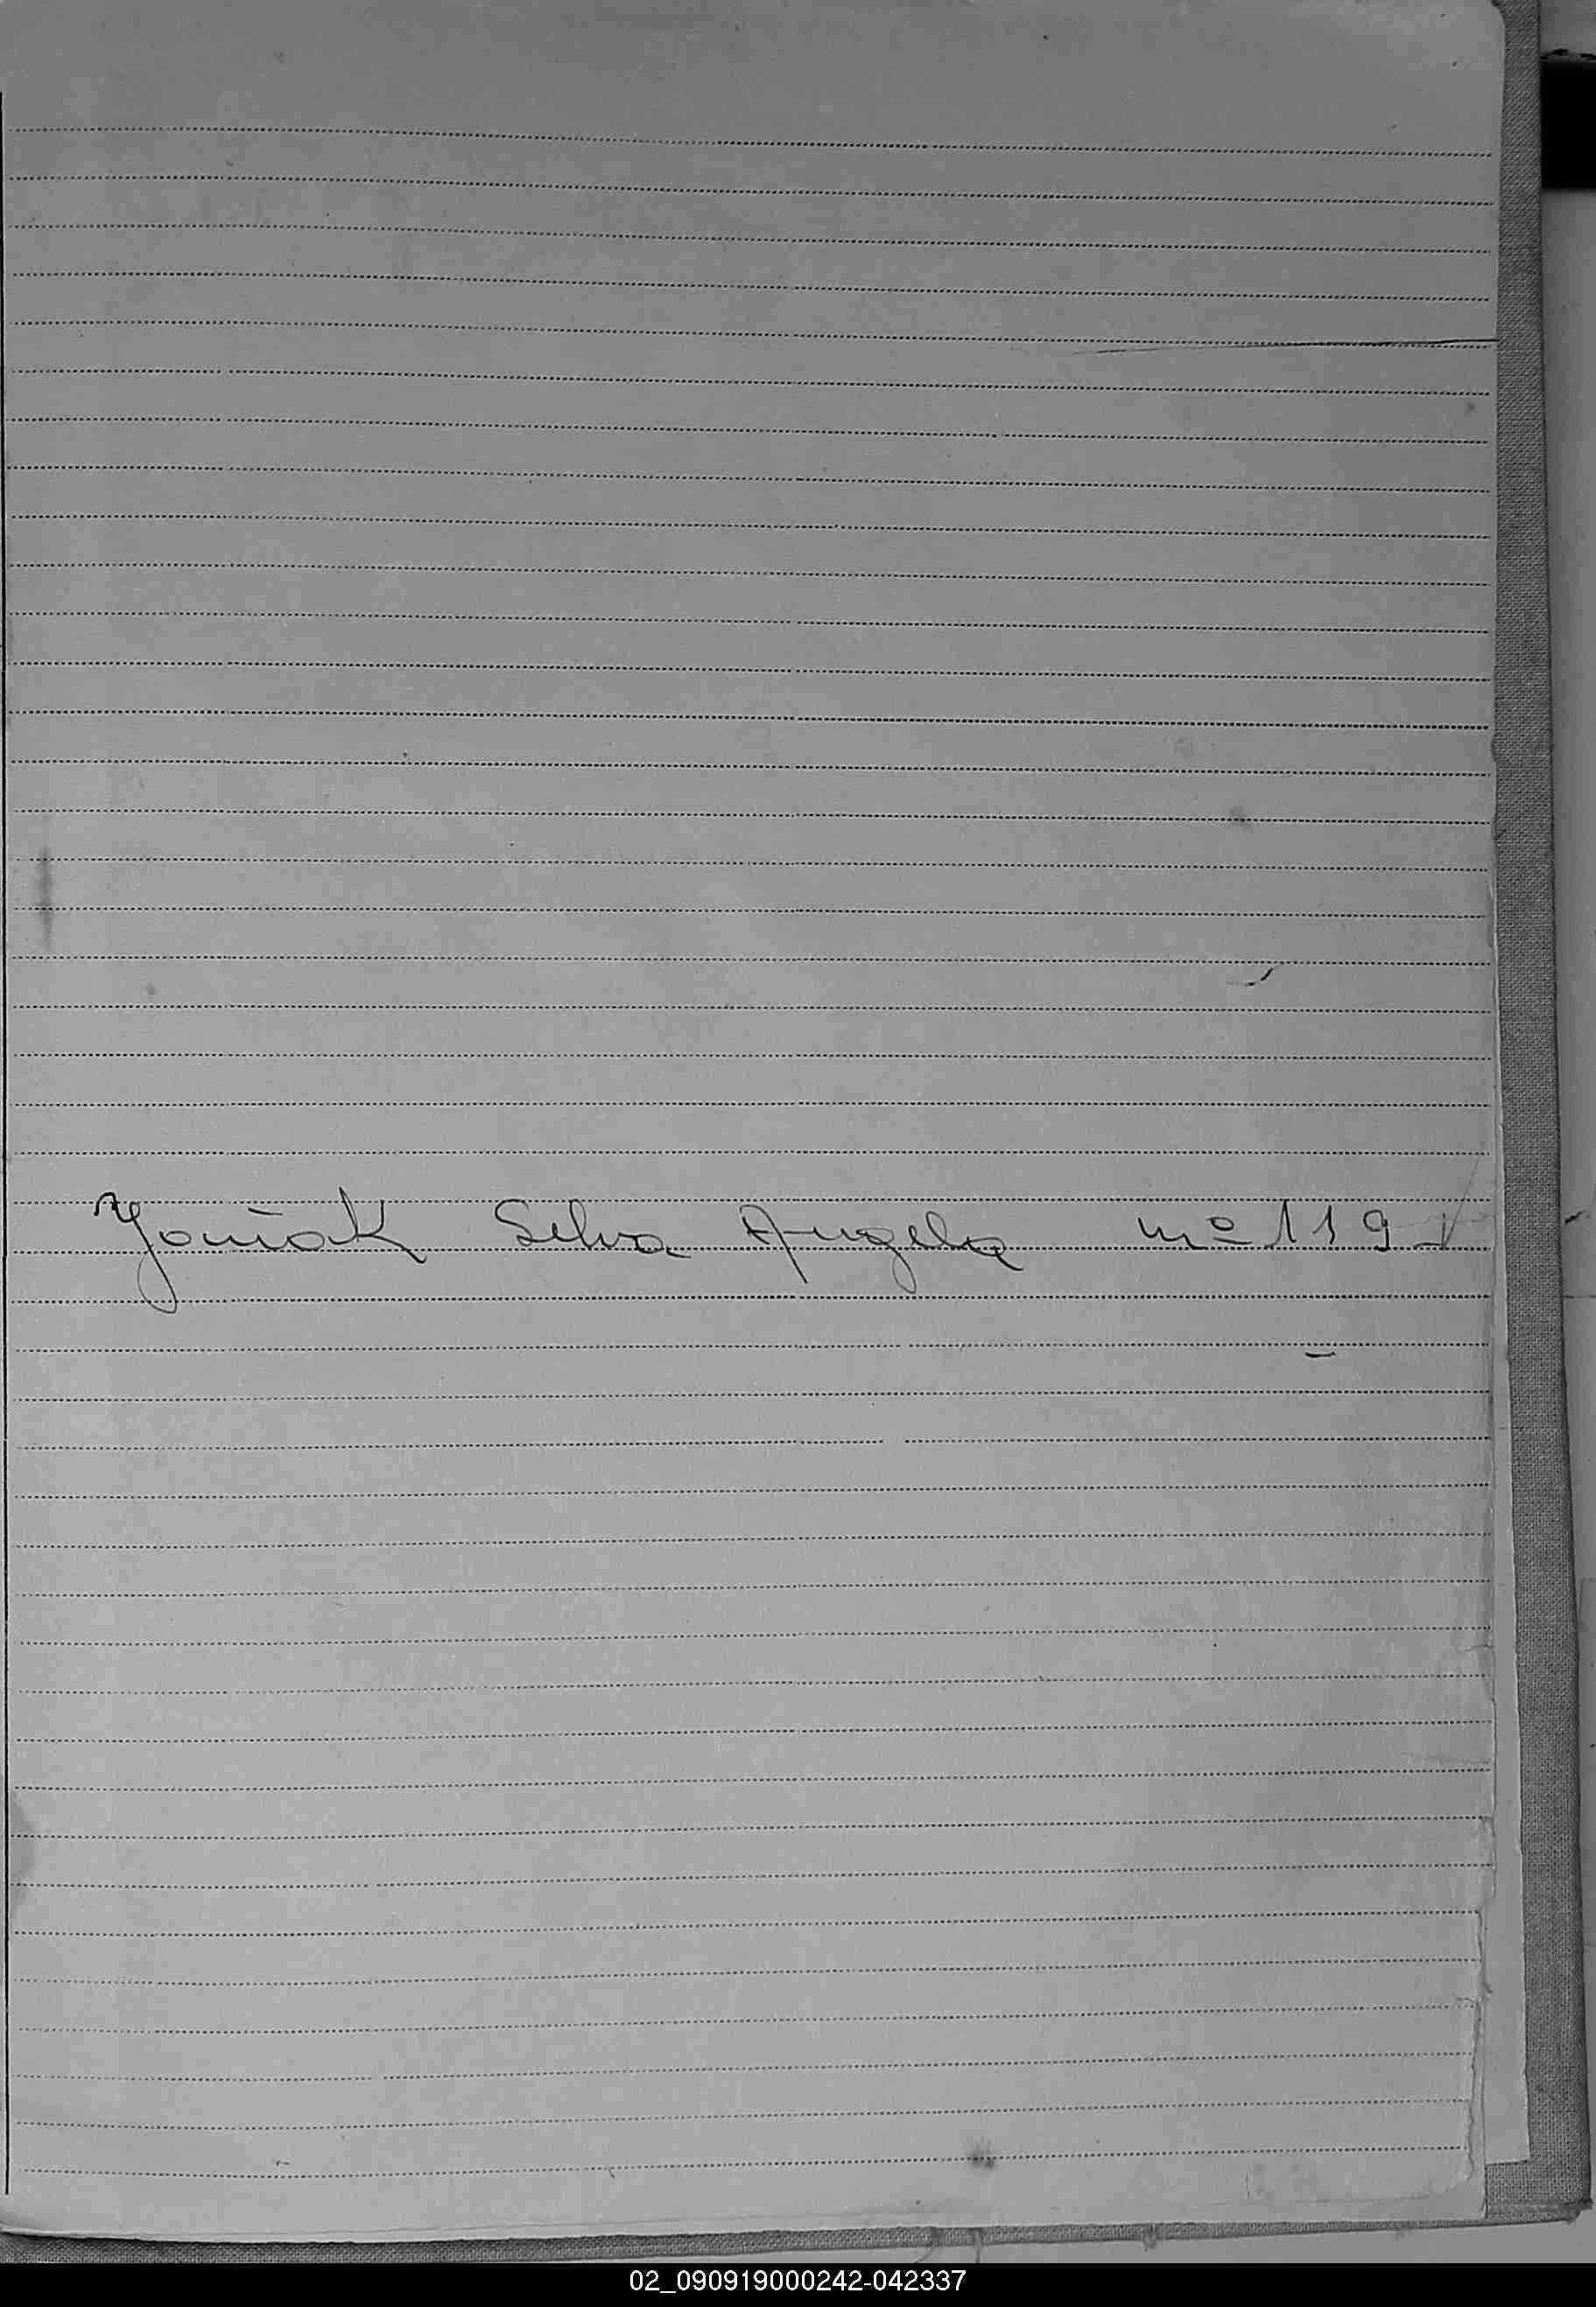 Yaniak Selva Angela nº 119
02_090919000242-042337